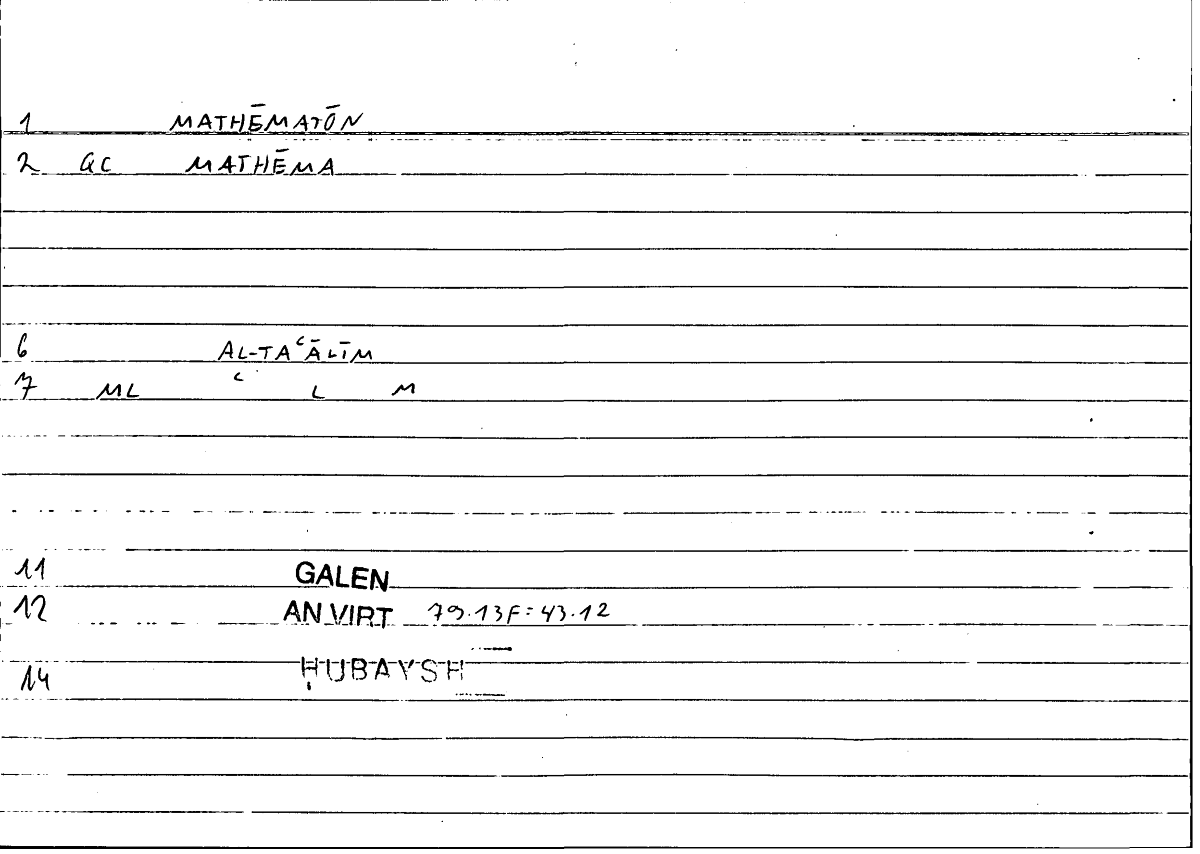 1 MATHĒMATŌN
2 GC MATHĒMA
6 AL-TAʿĀLĪM
7 ML ʿ L M
11 GALEN
12 AN VIRT 79.13F=43.12
14 ḤUBAYSH